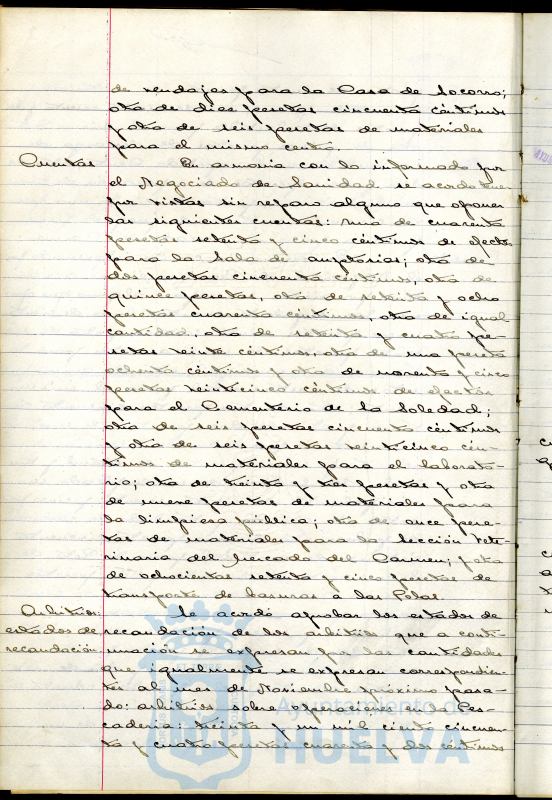 de vendajes para la Casa de Socorro;
otra de diez pesetas cincuenta céntimos
y otra de seis pesetas de materiales
para el mismo centro.
Cuentas
En armonia con lo informado por
el Negociado de Sanidad se acordó tener
por vistas sin reparo alguno que oponer
las siguientes cuentas: una de cuarenta
pesetas setenta y cinco céntimos de efectos
para la Sala de autopsias; otra de
dos pesetas cincuenta céntimos, otra de
quince pesetas, otra de setenta y ocho
pesetas cuarenta céntimos, otra de igual
cantidad, otra de setenta y cuatro pe-
setas veinte céntimos, otra de una peseta
ochenta céntimos y otra de noventa y cinco
pesetas veinticinco céntimos de efectos
para el Cementerio de la Soledad;
otra de seis pesetas cincuenta céntimos
y otra de seis pesetas veinticinco cén-
timos de materiales para el laborato-
rio; otra de treinta y tres pesetas y otra
de nueve pesetas de materiales para
la limpieza pública; otra de once pese-
tas de materiales para la sección vete-
rinaria del Mercado del Carmen; y otra
de ochocientas setenta y cinco pesetas de
transporte de basuras a las Polas.
Arbitrios:
estados de
recaudación
Se acordó aprobar los estados de
recaudación de los arbitrios que a conti-
nuación se expresan por las cantidades
que igualmente se expresan correspondien-
tes al mes de Noviembre próximo pasa-
do: arbitrios sobre operaciones en la Pes-
caderia: treinta y un mil ciento cincuen-
ta y cuatro pesetas cuarenta y dos céntimos
Ayuntamiento de
HUELVA